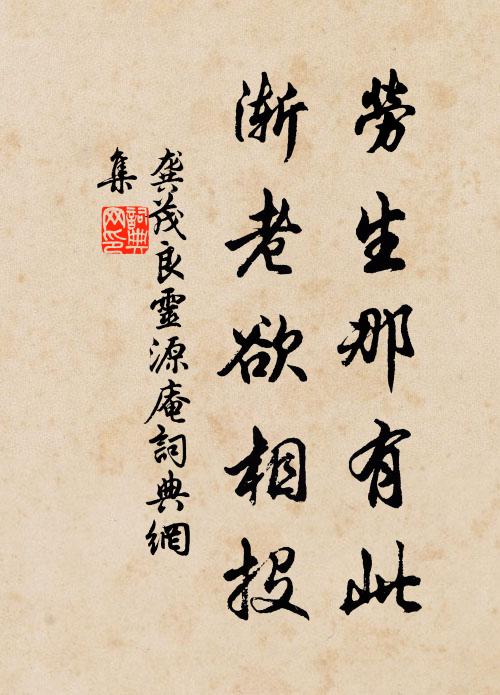 勞生那有此
漸老欲相投
龔茂良靈源庵詞典網
集
詞典
网印